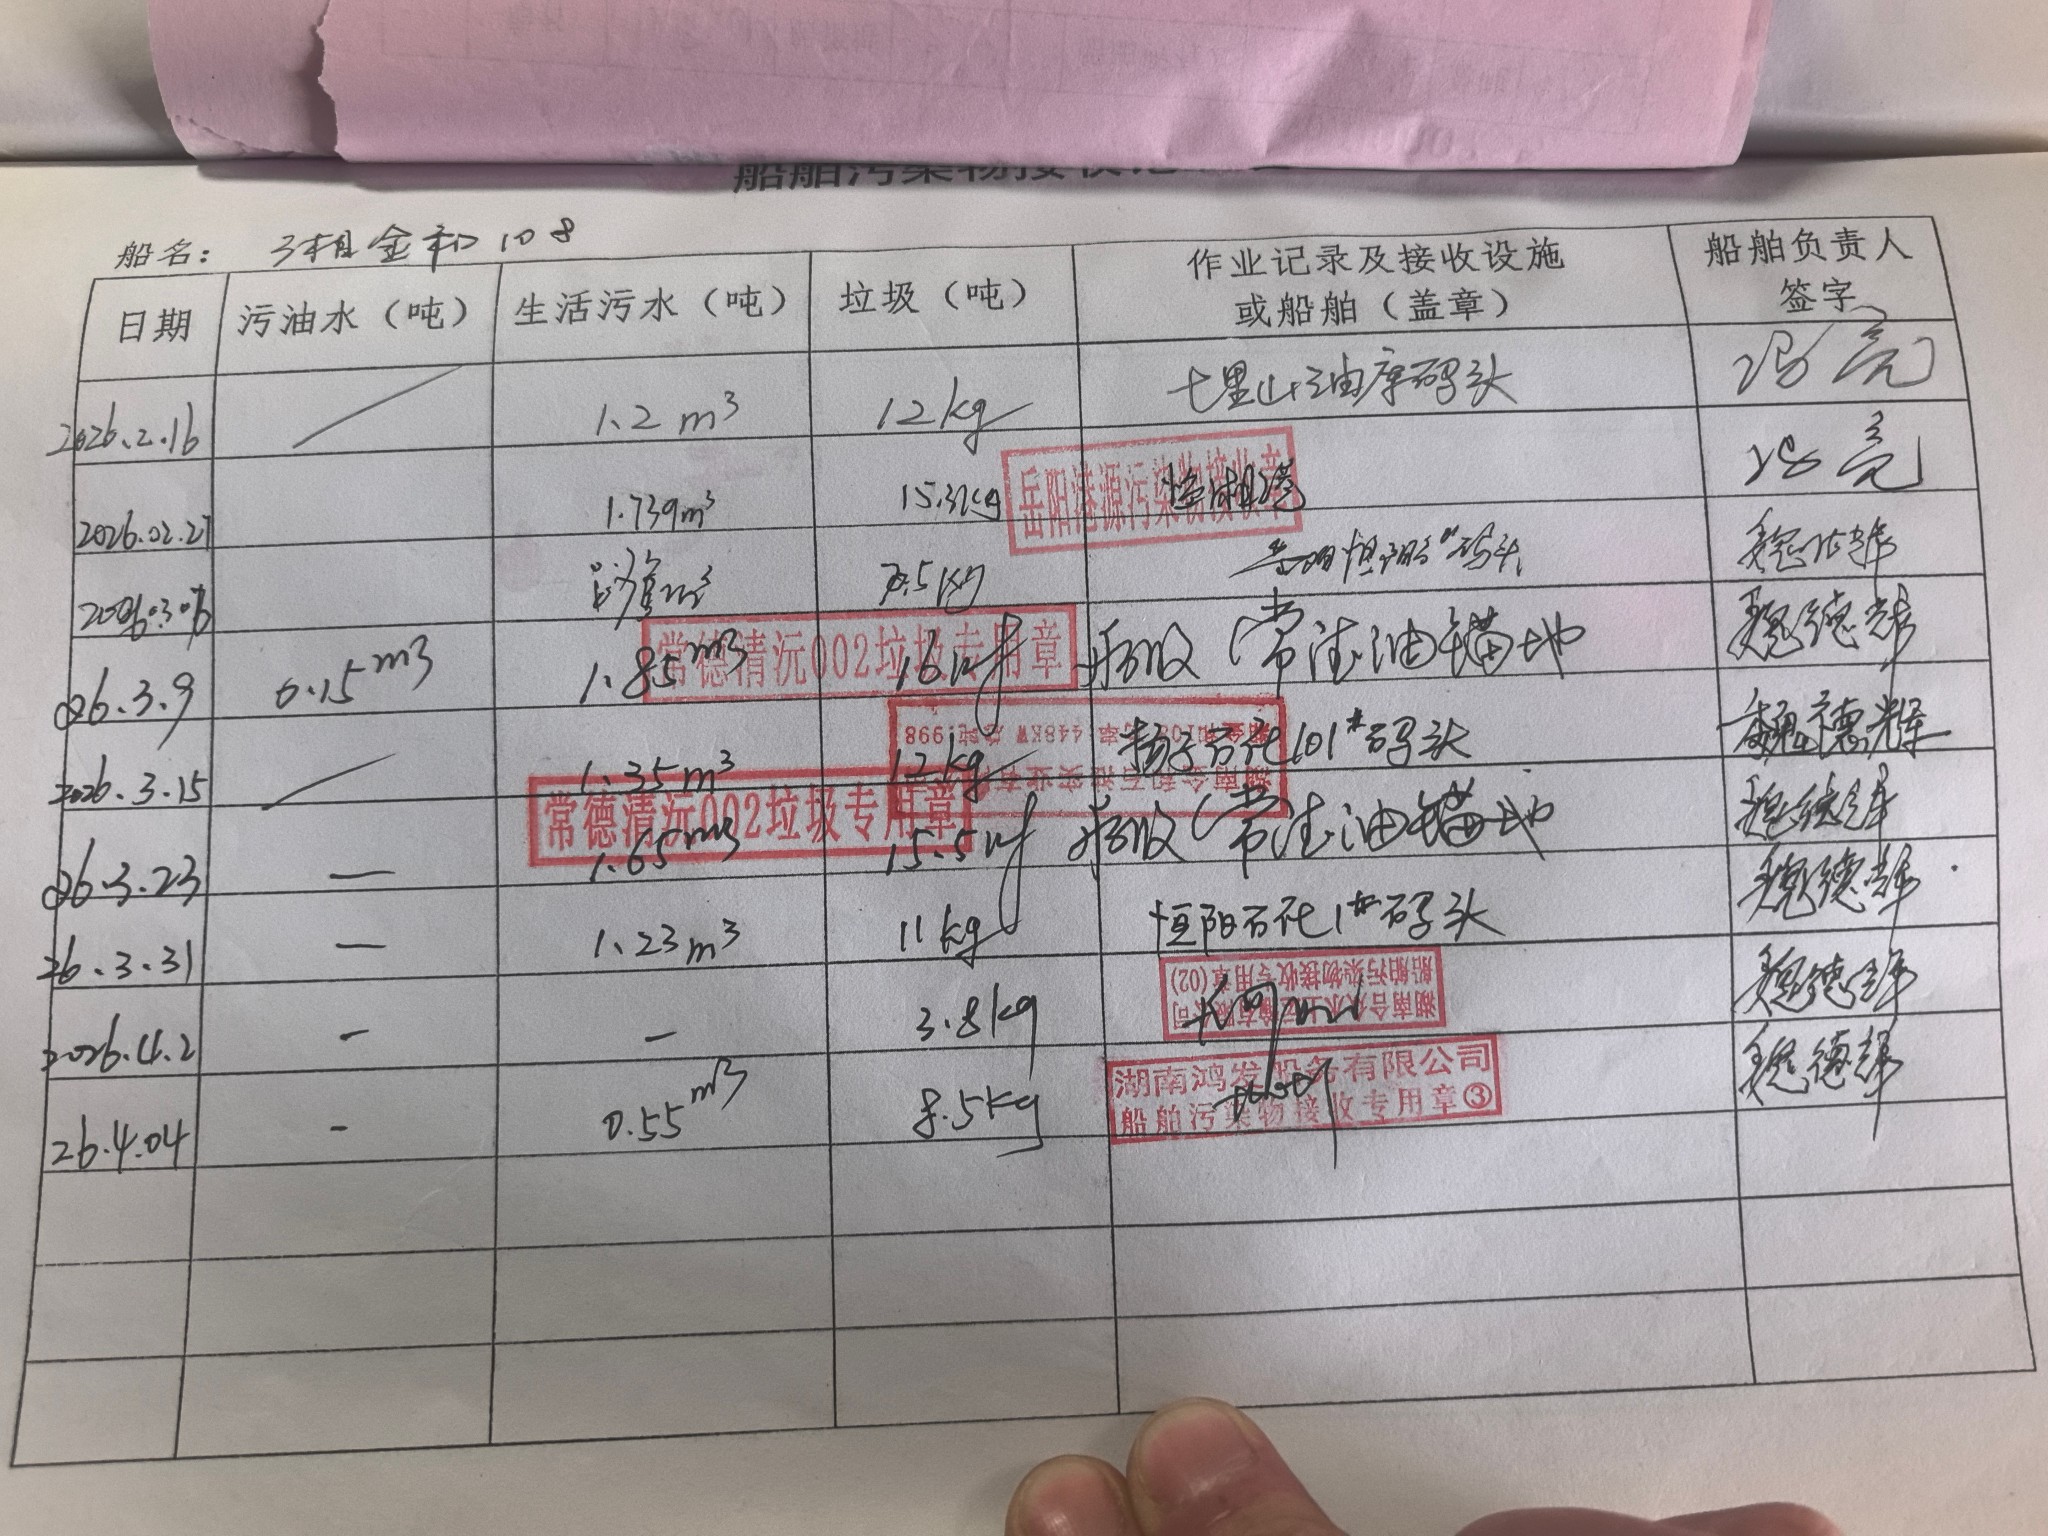 船舶污染物接收记
船名： 湘金和108
日期 污油水（吨） 生活污水（吨） 垃圾（吨） 作业记录及接收设施或船舶（盖章） 船舶负责人签字
2026.2.16 1.2 m³ 12kg 七里山油库码头 冯亮
2026.02.27 1.739m³ 15.3kg 岳阳港源污染物接收章 冯亮
m³ 码头
26.3.9 0.15m³ 1.85m³ 16kg 常德清沅002垃圾专用章 接收（常德油锚地 魏德辉
2026.3.15 1.35m³ 12kg 扬子石化101#码头 魏德辉
448KW 998
26.3.23 — 1.65m³ 15.5kg 常德清沅002垃圾专用章 接收（常德油锚地 魏德辉
26.3.31 — 1.23m³ 11kg 恒阳石化1#码头 魏德辉
2026.4.2 - - 3.8kg 船舶污染物接收专用章(02) 魏德辉
26.4.04 - 0.55m³ 8.5kg 湖南鸿发船务有限公司 船舶污染物接收专用章③ 魏德辉